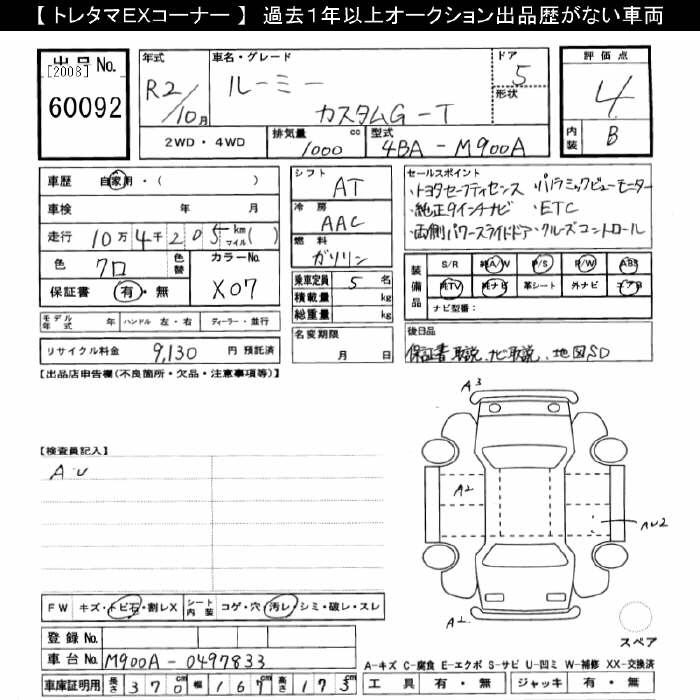 【 トレタマEXコーナー 】 過去1年以上オークション出品歴がない車両
出品 No.
[2008]
60092
年式
R2/10月
車名・グレード
ルーミー
カスタムG-T
ドア
5
形状
評価点
4
内装
B
2WD・4WD
排気量
1000 cc
型式
4BA-M900A
車歴 自家用・( )
車検 年 月
走行 10万4千205 km マイル( )
色 クロ
色替
カラーNo.
X07
保証書 有・無
シフト AT
冷房 AAC
燃料 ガソリン
乗車定員 5 名
積載量 kg
総重量 kg
名変期限
月 日
セールスポイント
・トヨタセーフティセンス ・パノラミックビューモニター
・純正9インチナビ ・ETC
・両側パワースライドドア・クルーズコントロール
装備品
S/R 純A/W P/S P/W ABS
純TV 純ナビ 革シート 外ナビ エアB
ナビ型番:
モデル年式 年 ハンドル 左・右 ディーラー・並行
リサイクル料金 9,130 円 預託済
後日品
保証書、取説、ナビ取説、地図SD
【出品店申告欄(不良箇所・欠品・注意事項等)】
【検査員記入】
A・U
A3
A2
AU2
スペア
FW キズ・トビ石・割レX シート内装 コゲ・穴・汚レ・シミ・破レ・スレ
登録 No.
車台 No. M900A-0497833
車庫証明用 長さ 370 幅 167 高さ 173
A-キズ C-腐食 E-エクボ S-サビ U-凹ミ W-補修 XX-交換済
工具 有・無 ジャッキ 有・無